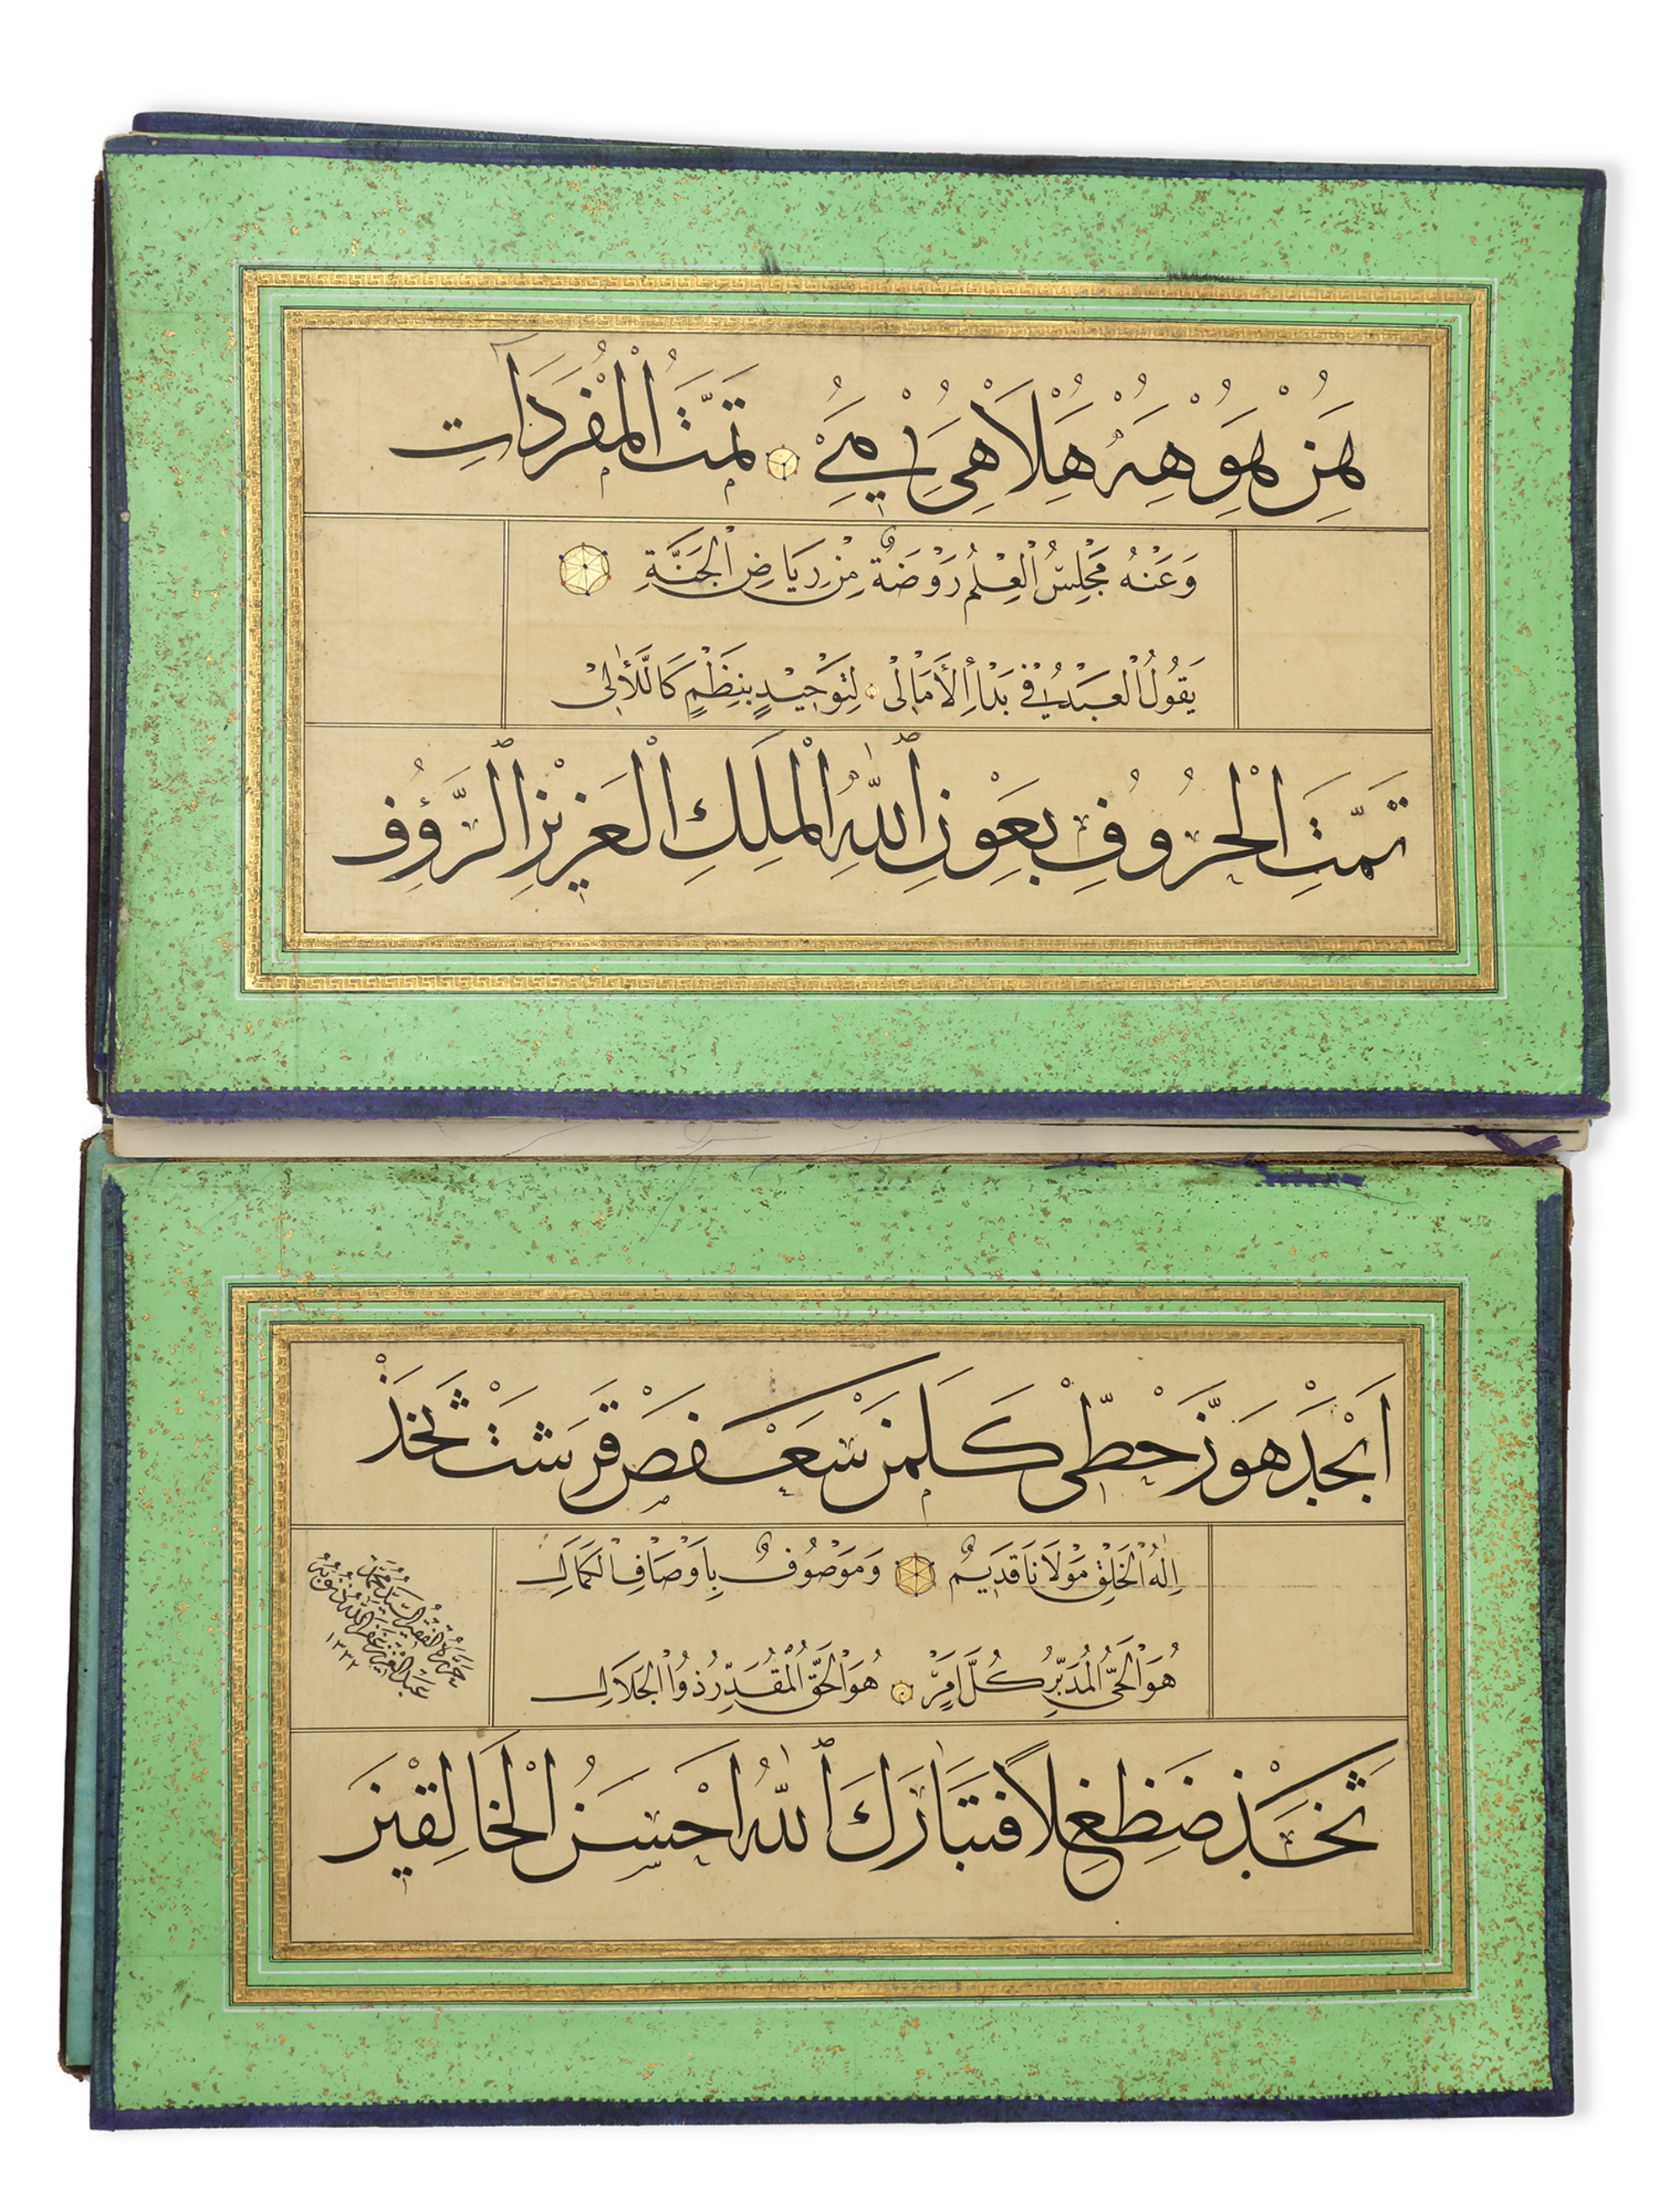 هَنْ هُوَ هِهْ هَلَا هِي يَ مَے تَمَّتِ الْمُفْرَدَاتِ
وَعَنْهُ مَجْلِسُ الْعِلْمِ رَوْضَةٌ مِنْ رِيَاضِ الْجَنَّةِ
يَقُولُ الْعَبْدُ فِي بَدْأِ الْأَمَالِي لِتَوْحِيدٍ بِنَظْمٍ كَاللَّآلِي
تَمَّتِ الْحُرُوفِ بِعَوْنِ ٱللهِ الْمَلِكِ الْعَزِيزِ ٱلرَّؤُفِ
اَبْجَدْ هَوَّزْ حُطِّي كَلَمَنْ سَعْفَصْ قَرَشَتْ ثَخَذْ
اِلٰهُ الْخَلْقِ مَوْلَانَا قَدِيمٌ وَمَوْصُوفٌ بِاَوْصَافِ الْكَمَالِ
هُوَ الْحَيُّ الْمُدَبِّرُ كُلَّ اَمْرٍ هُوَ الْحَقُّ الْمُقَدِّرُ ذُو الْجَلَالِ
حَرَّرَهُ الْفَقِيرُ السَّيِّدُ مُحَمَّدْ
عَبْدُ الْعَزِيزْ غَفَرَ اللهُ ذُنُوبَهُ
١٣٣٢
ثَخَذْ ضَظَغِلًا فَتَبَارَكَ ٱللهُ اَحْسَنُ الْخَالِقِينَ